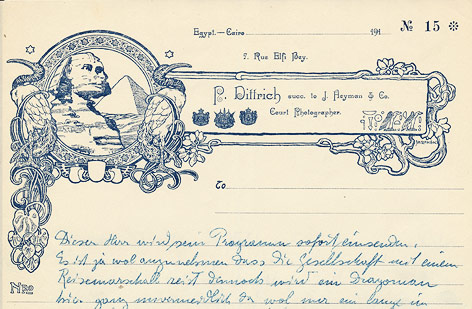 Egypt.-Cairo 191 № 15 *
7. Rue Elfi Bey.
P. Dittrich succ. to J. Heyman & Co.
Court Photographer.
To
Dieser Herr wird sein Programm sofort einsenden.
Es ist ja wol anzunehmen dass die Gesellschaft mit einem
Reisemarschall reist dennoch wird ein Dragoman
hier ganz unvermeidlich da wol nur ein lange im
Nro